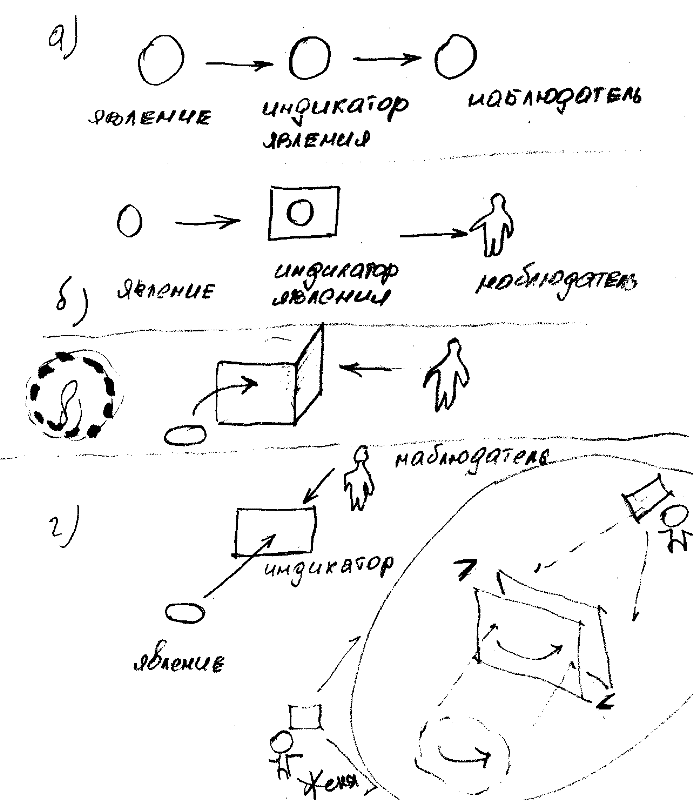 а)
явление
индикатор
явления
наблюдатель
явление
индикатор
явления
наблюдатель
б)
в
наблюдатель
г)
индикатор
явление
Женя